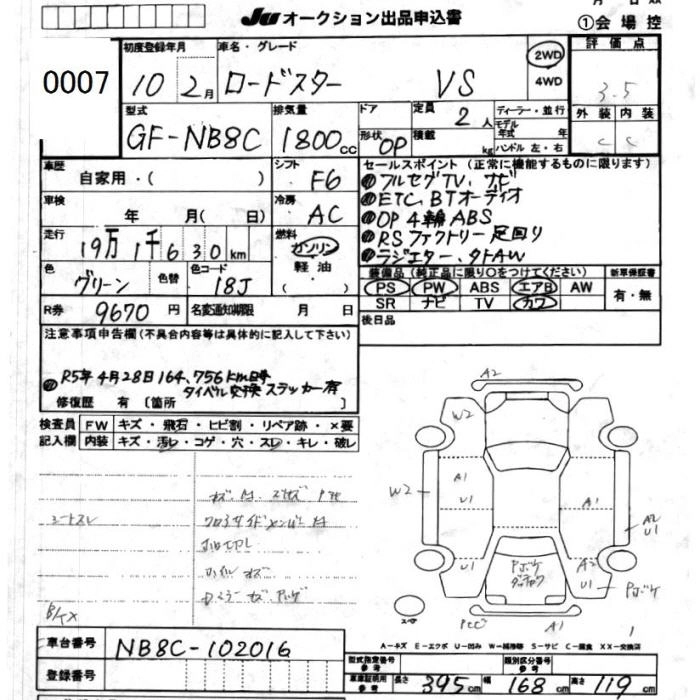 JU オークション出品申込書
①会場控
0007
初度登録年月
車名・グレード
10 2月 ロードスター VS
2WD
4WD
評価点
3.5
外装 内装
C C
型式 排気量 ドア 定員 ディーラー・並行
GF-NB8C 1800cc
2人
モデル年式 年
形状 OP 積載 kg ハンドル 左・右
車歴 シフト
自家用・( ) F6
セールスポイント(正常に機能するものに限ります)
フルセグTV, ナビ
ETC, BTオーディオ
OP 4輪ABS
RSファクトリー足回り
ラジエター、タトAW
車検 冷房
年 月(日) AC
走行 燃料
19万 1千 6 3 0 km ガソリン
軽油・
( )
色 色替 色コード
グリーン 18J
装備品(純正品に限り○をつけてください) 新車保証書
PS PW ABS エアB AW
SR ナビ TV カワ
有・無
R券 9670円 名変通知期限 月 日
後日品
注意事項申告欄(不具合内容等は具体的に記入して下さい)
R5年4月28日 164,756km時
タイベル交換ステッカー有
修復歴 有 [箇所 ]
検査員記入欄 FW キズ・飛石・ヒビ割・リペア跡・×要
内装 キズ・汚レ・コゲ・穴・スレ・キレ・破レ
シートスレ
A2
W2
A1
U1
W2
A1
A2
U1
U1
A2
U1
Pボケ
Pボケ
A1
1
A-キズ E-エクボ U-凹み W-補修跡 S-サビ C-腐食 XX-交換済
車台番号 NB8C-102016
登録番号
型式指定番号 参考
類別区分番号 参考
車庫証明用 参考 長さ 395cm 幅 168cm 高さ 119cm